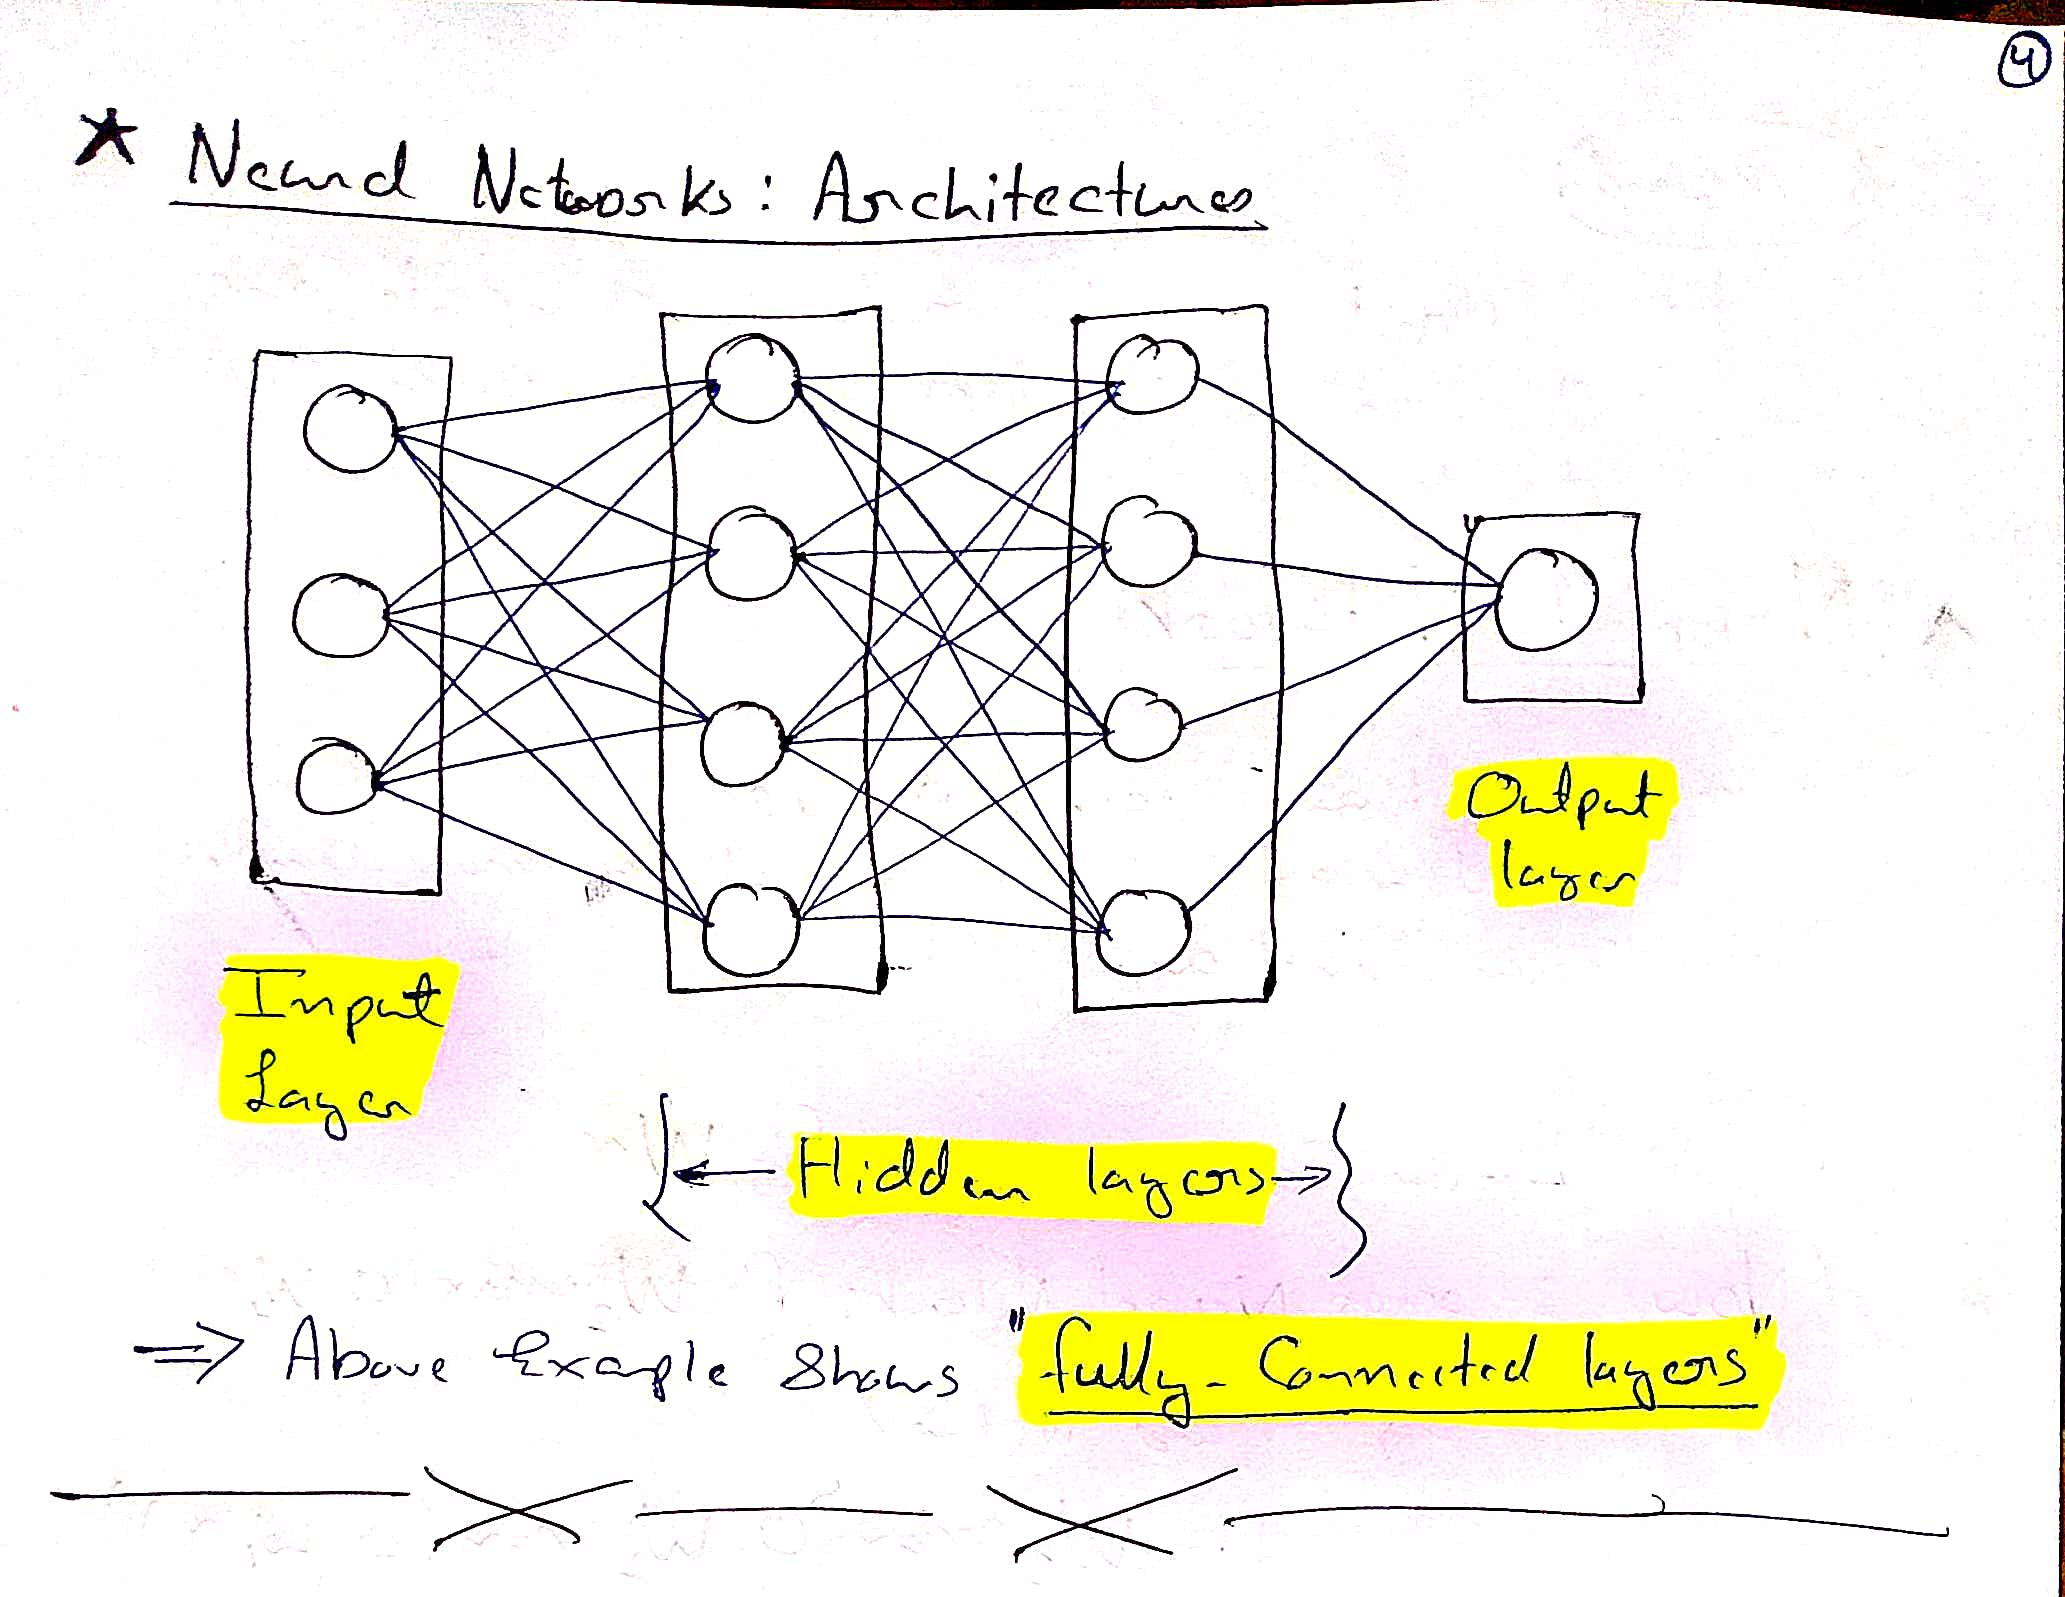 4
Neural Networks: Architectures
Output
layer
Input
Layer
Hidden layers
⇒ Above Example Shows "fully-Connected layers"